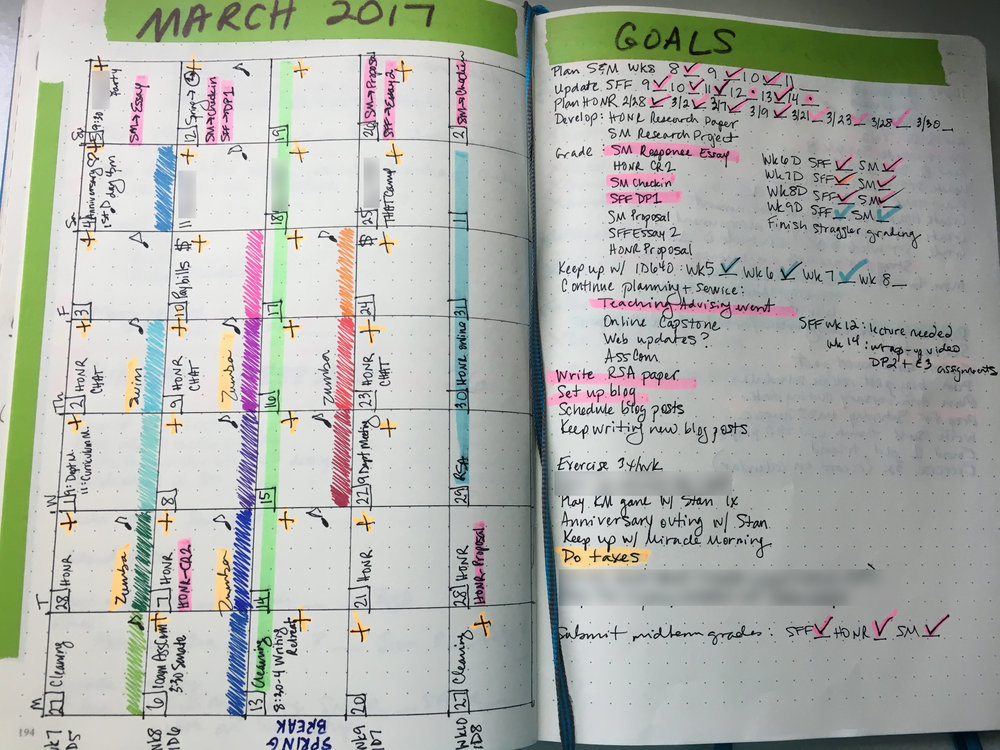 MARCH 2017
M
T
W
Th
F
Sa
Su
WK7
D5
27 Cleaning
28 HONR
Zumba
1 9: Dept M.
11: Curriculum M.
2 HONR
CHAT
3
4 Anniversary
1st D day 3m
5 9:30
Party
SM→Essay
WK8
D6
6 10am AssCom
3:30 Senate
7 HONR
HONR-CR2
Zumba
8
9 HONR
CHAT
Zumba
10 Pay bills $
11
12 Spring→
SM→Checkin
SFF→DP1
SPRING
BREAK
13 Cleaning
8:30-4 Writing
Retreat
14
15
16
17
18
19
Zumba
WK9
D7
20
21 HONR
22 9 Dept Meeting
23 HONR
CHAT
24 $
25 THATCamp
26 SM→Proposal
SFF→Essay2
WK10
D8
27 Cleaning
28 HONR
HONR-Proposal
29 RSA
30 HONR online
31
1
2 SM→Checkin
194
GOALS
Plan SM WK8 8 9 10 11
Update SFF 9 10 11 12 13 14
Plan HONR 2/28 3/2 3/7 3/9 3/21 3/23 3/28 3/30
Develop: HONR Research Paper
SM Research Project
Grade: SM Response Essay
HONR CR2
SM Checkin
SFF DP1
SM Proposal
SFF Essay 2
HONR Proposal
Wk6D SFF SM
Wk7D SFF SM
Wk8D SFF SM
Wk9D SFF SM
Finish straggler grading
Keep up w/ ID640: Wk5 Wk6 Wk7 Wk8
Continue planning + service:
Teaching Advising event
Online Capstone
Web updates?
AssCom
SFF wk12: lecture needed
wk 14: wrap-up video
DP2 + E3 assignments
Write RSA paper
Set up blog
Schedule blog posts
Keep writing new blog posts
Exercise 3x/wk
Play KM game w/ Stan 1x
Anniversary outing w/ Stan
Keep up w/ Miracle Morning
Do taxes
Submit midterm grades: SFF HONR SM